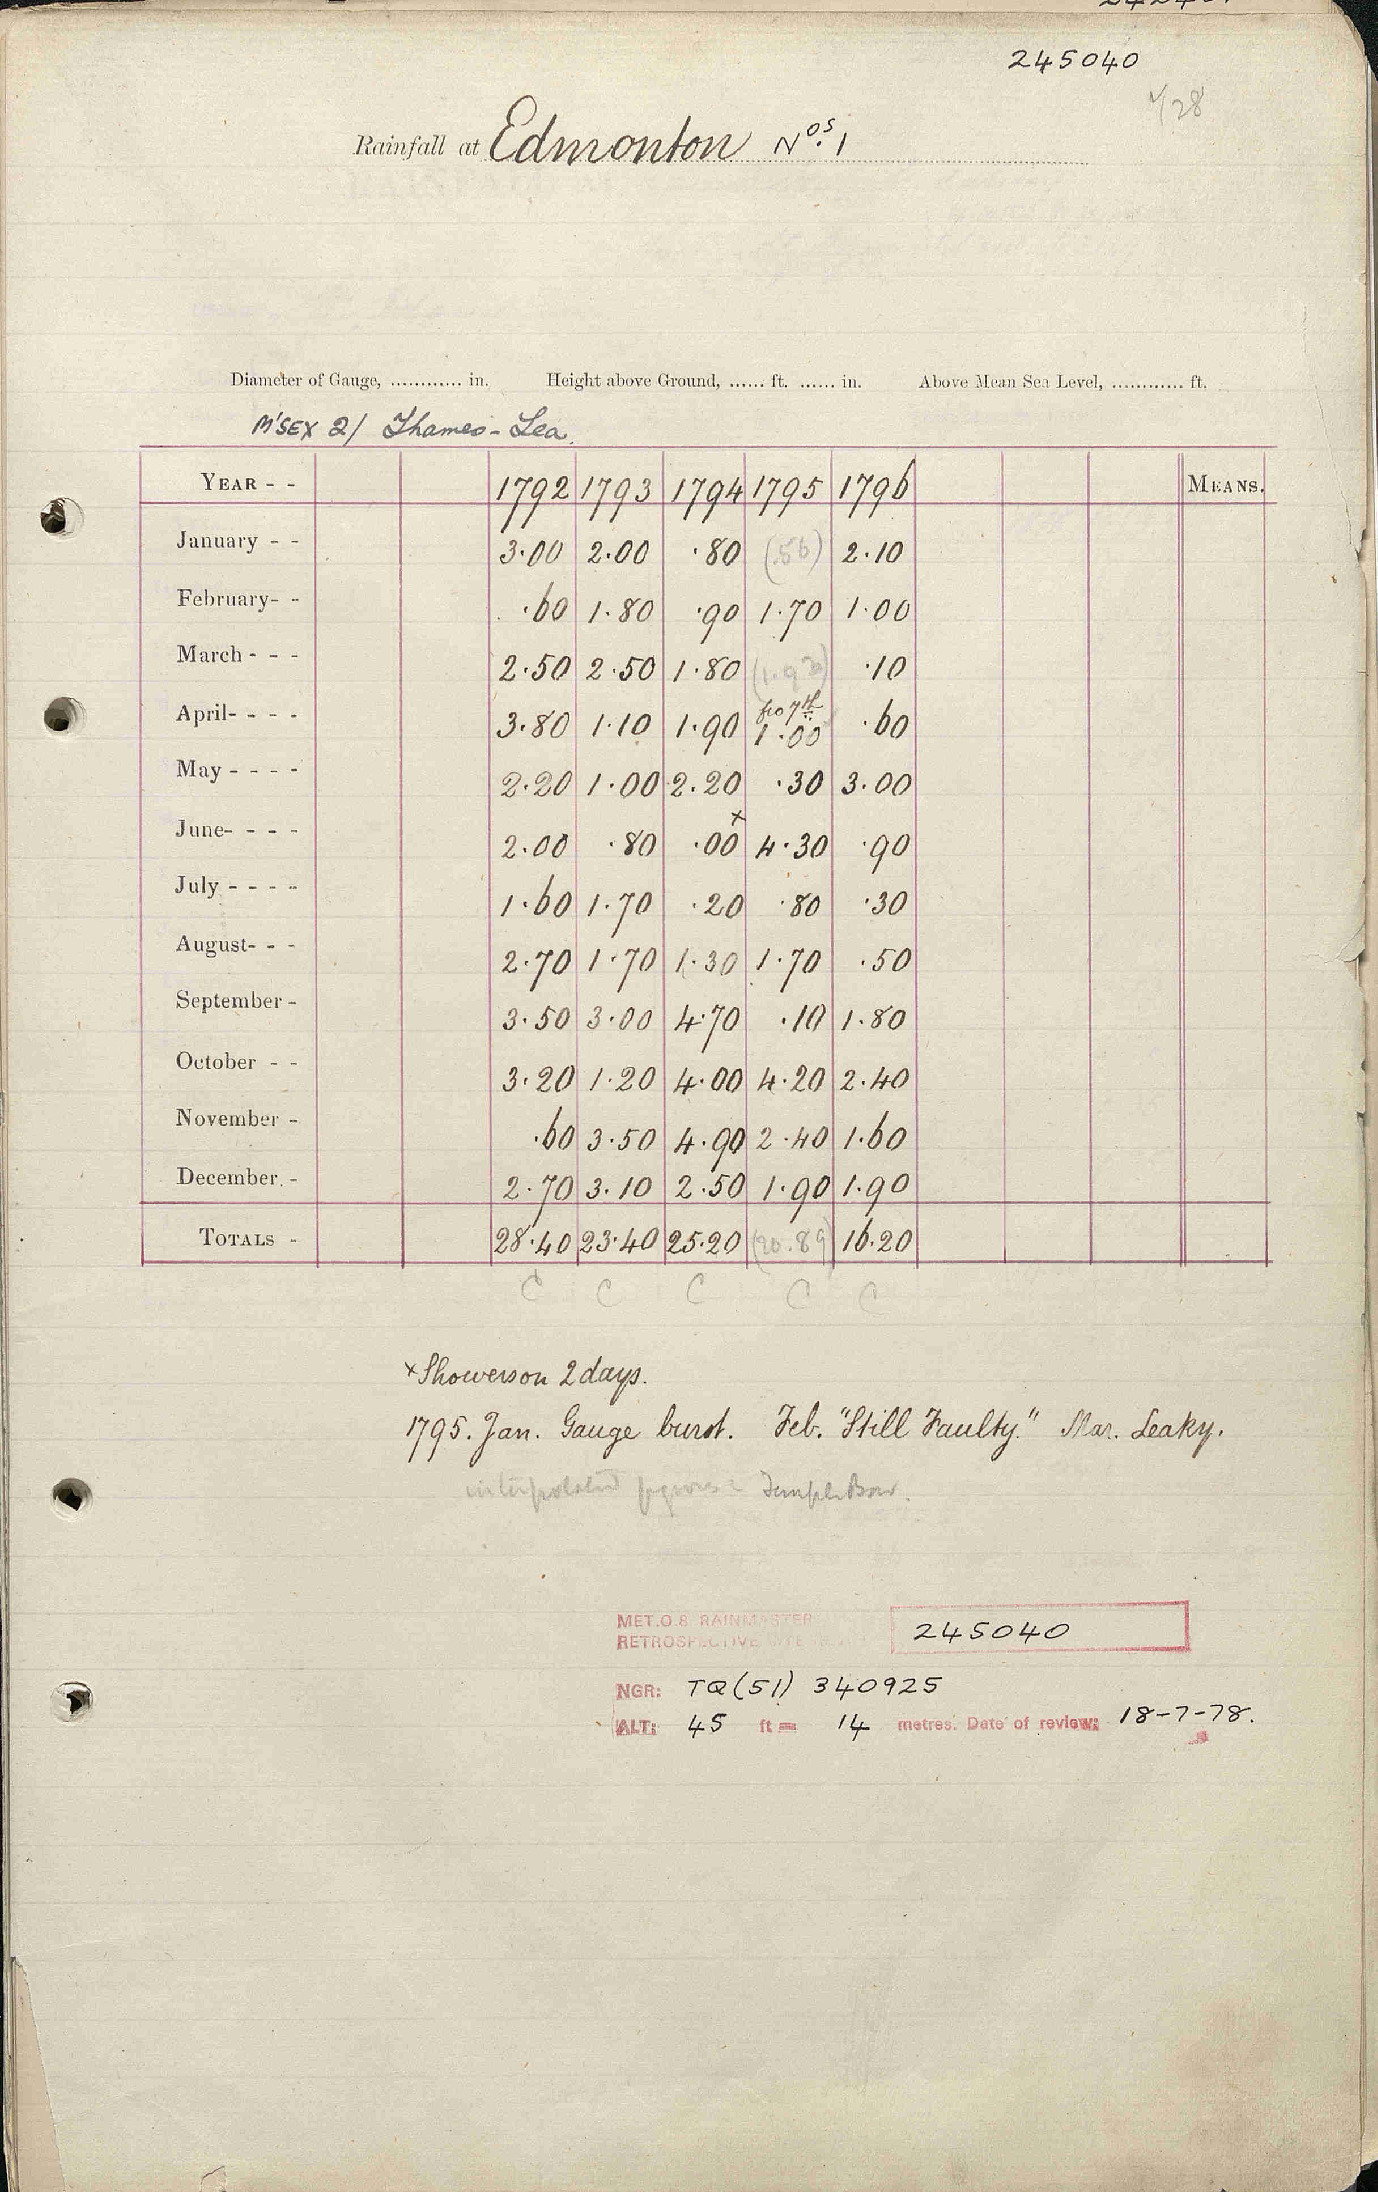 245040
Rainfall at Edmonton Nos. 1
Diameter of Gauge, ............ in. Height above Ground, ...... ft. ...... in. Above Mean Sea Level, ............ ft.
M'SEX 2/ Thames - Lea.
YEAR - - 1792 1793 1794 1795 1796 MEANS.
January - - 3.00 2.00 .80 (.56) 2.10
February- - .60 1.80 .90 1.70 1.00
March - - - 2.50 2.50 1.80 .10
April- - - - 3.80 1.10 1.90 fro 7th 1.00 .60
May - - - - 2.20 1.00 2.20 .30 3.00
June- - - - 2.00 .80 .00 x 4.30 .90
July - - - - 1.60 1.70 .20 .80 .30
August- - - 2.70 1.70 1.30 1.70 .50
September - 3.50 3.00 4.70 .10 1.80
October - - 3.20 1.20 4.00 4.20 2.40
November - .60 3.50 4.90 2.40 1.60
December. - 2.70 3.10 2.50 1.90 1.90
TOTALS - 28.40 23.40 25.20 (20.89) 16.20
C C C C C
x Showers on 2 days.
1795. Jan. Gauge burst. Feb. "Still Faulty." Mar. Leaky.
interpolated figures = Temple Bar.
MET.O.8 RAINMASTER
RETROSPECTIVE 245040
NGR: TQ(51) 340925
ALT: 45 ft = 14 metres. Date of review: 18-7-78.